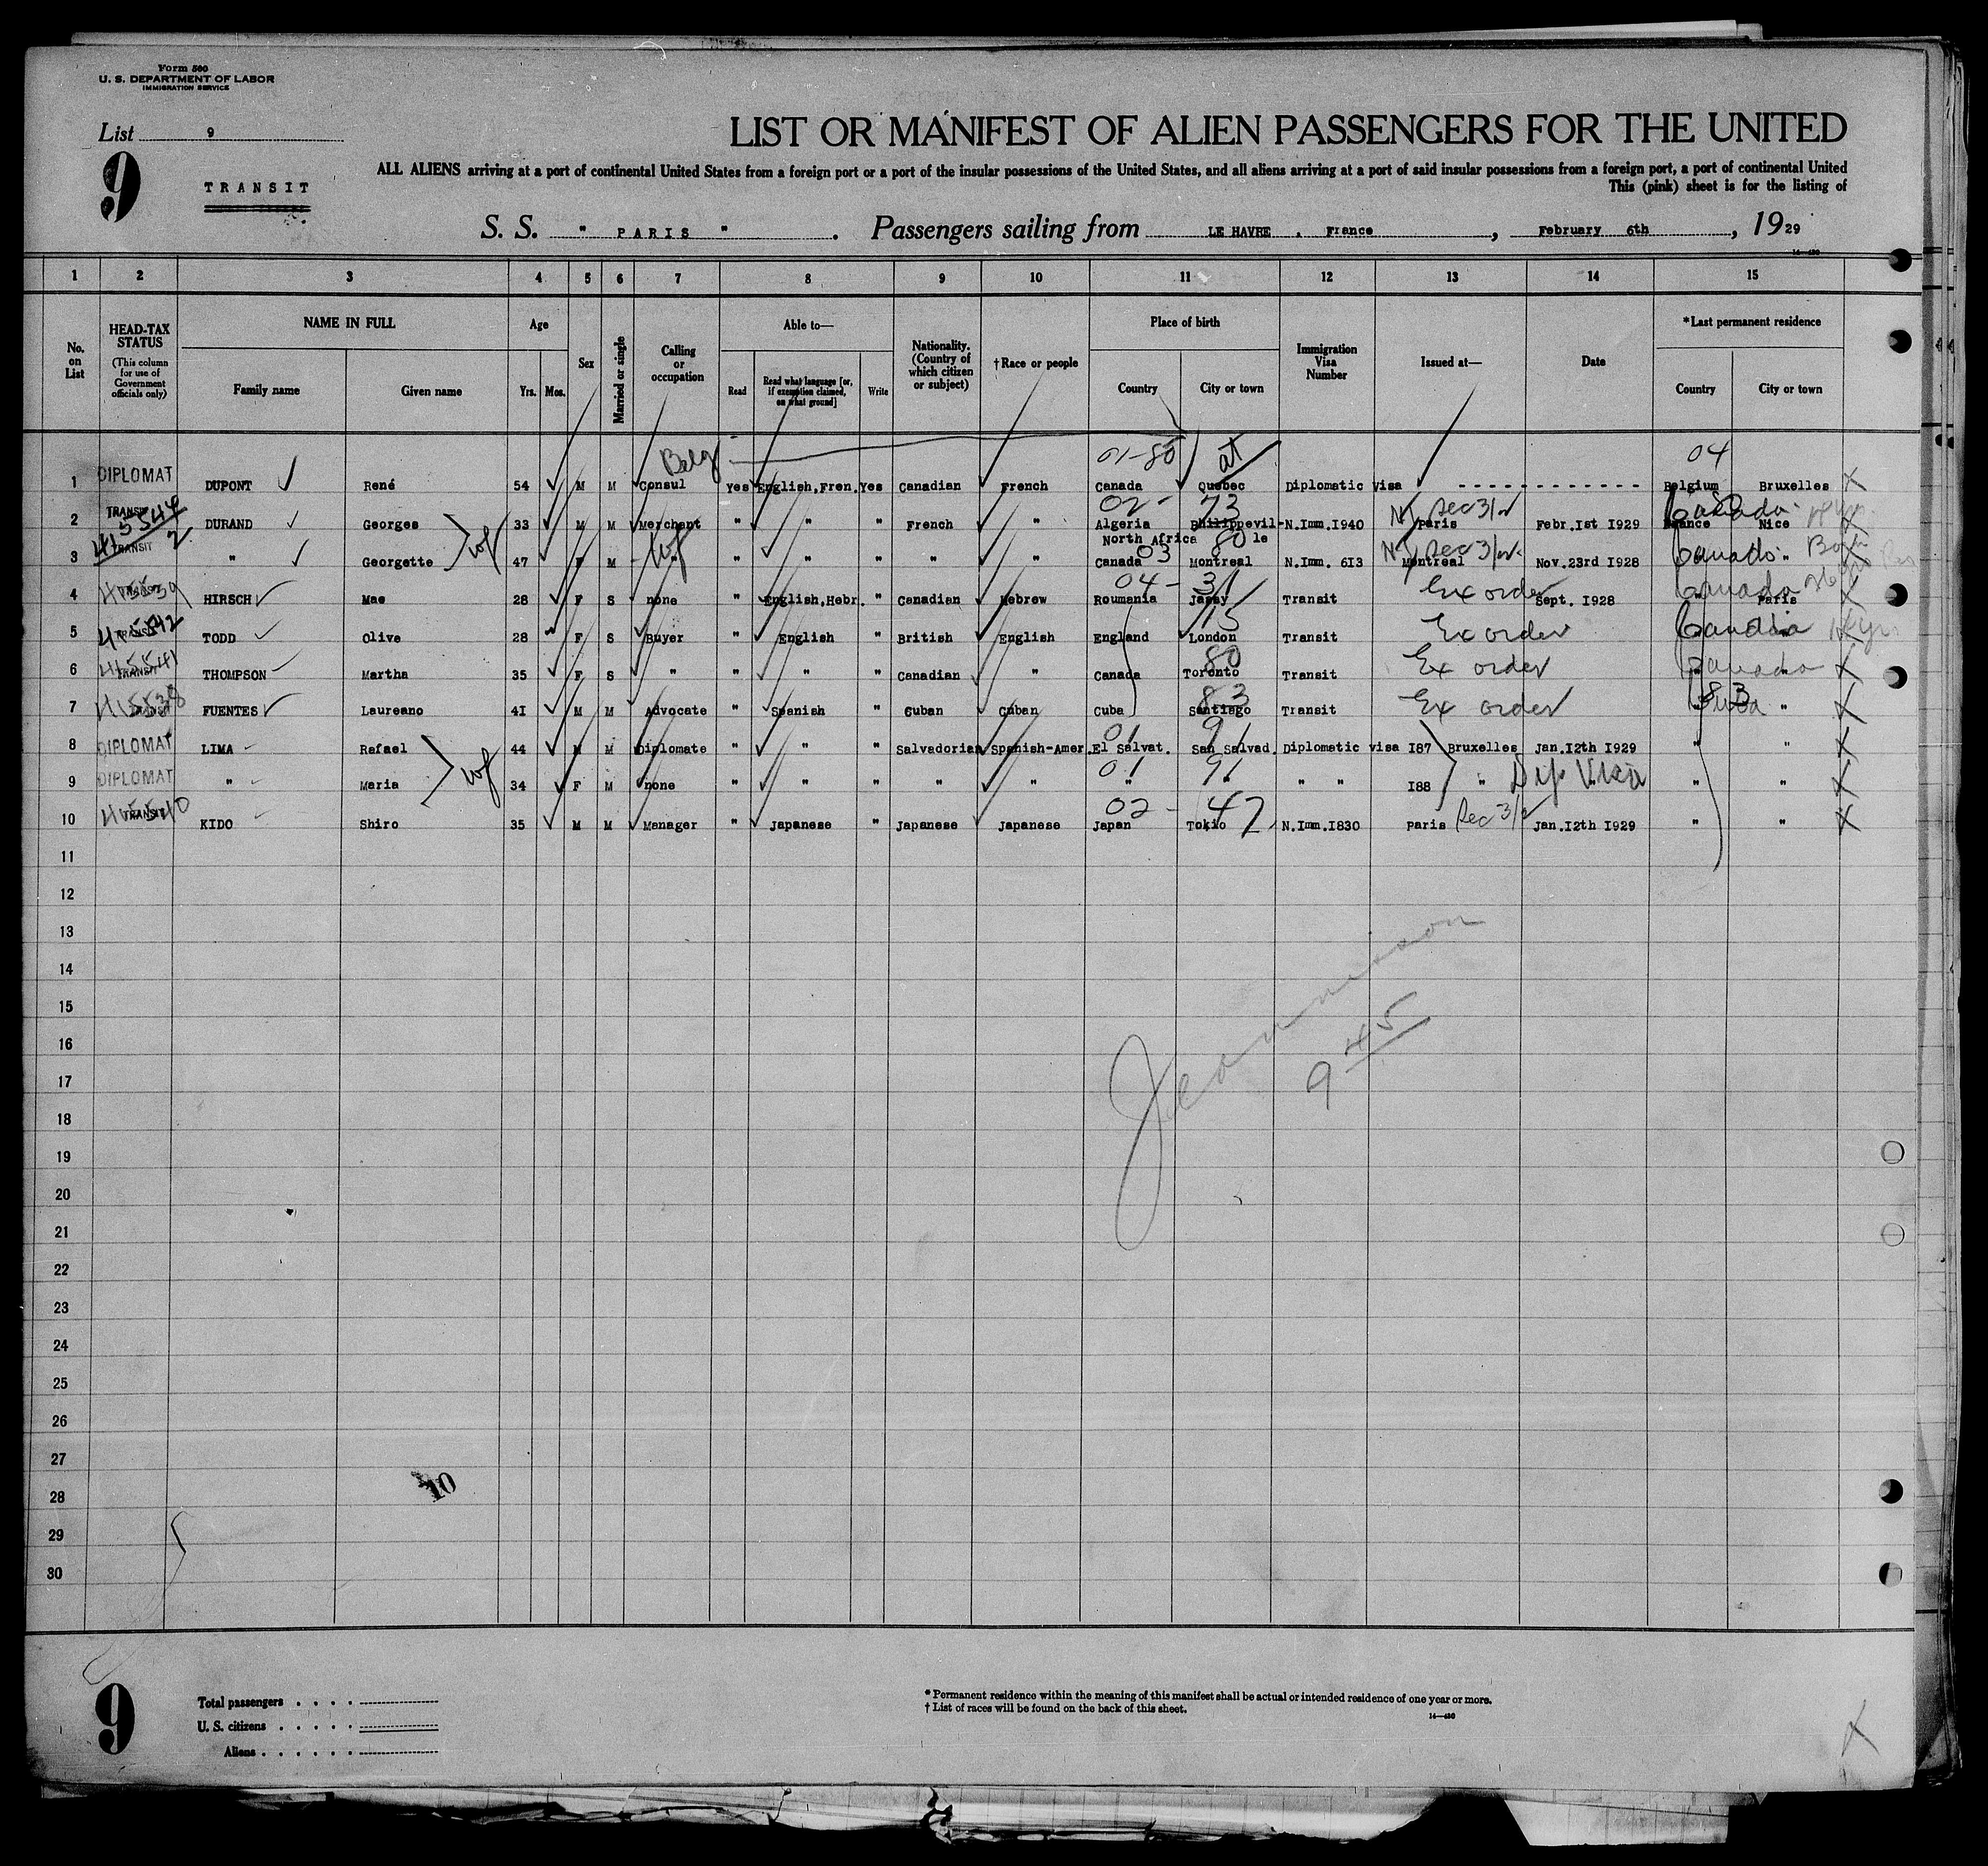 Form 500
U. S. DEPARTMENT OF LABOR
IMMIGRATION SERVICE
List 9
9
TRANSIT
LIST OR MANIFEST OF ALIEN PASSENGERS FOR THE UNITED
ALL ALIENS arriving at a port of continental United States from a foreign port or a port of the insular possessions of the United States, and all aliens arriving at a port of said insular possessions from a foreign port, a port of continental United
This (pink) sheet is for the listing of
S. S. " PARIS ". Passengers sailing from LE HAVRE . France , February 6th , 1929
1 2 3 4 5 6 7 8 9 10 11 12 13 14 15
No. on List
HEAD-TAX STATUS (This column for use of Government officials only)
NAME IN FULL
Family name Given name
Age
Yrs. Mos.
Sex
Married or single
Calling or occupation
Able to—
Read Read what language [or, if exemption claimed, on what ground] Write
Nationality. (Country of which citizen or subject)
†Race or people
Place of birth
Country City or town
Immigration Visa Number
Issued at—
Date
*Last permanent residence
Country City or town
Belg 01-80 at 04
1 DIPLOMAT DUPONT René 54 M M Consul Yes English,Fren. Yes Canadian French Canada Quebec Diplomatic visa - - - - - - - - - - - - - Belgium Bruxelles X
02- 73 Dec 31/2 Canada
2 TRANSIT DURAND Georges 33 M M Merchant " " " French " Algeria Philippevil- N.Imm.I940 Paris Febr.Ist I929 France Nice
North Africa le
wf wf 03 80 Dec 31/2 Canada
3 TRANSIT " Georgette 47 F M " " " " " " Canada Montreal N.Imm. 6I3 Montreal Nov.23rd I928 "
04- 31 Ex order Canada
4 HIRSCH Mae 28 F S none " English,Hebr. " Canadian Hebrew Roumania Jassy Transit Sept. I928 " Paris X
415542 15 Ex order Canada
5 TRANSIT TODD Olive 28 F S Buyer " English " British English England London Transit
415541 80 Ex order Canada
6 TRANSIT THOMPSON Martha 35 F S " " " " Canadian " Canada Toronto Transit X
415538 83 Ex order Cuba 83
7 FUENTES Laureano 4I M M Advocate " Spanish " Cuban Cuban Cuba Santiago Transit " " X
01 91
8 DIPLOMAT LIMA Rafael 44 M M Diplomate " " " Salvadorian Spanish-Amer. El Salvat. San Salvad. Diplomatic visa I87 Bruxelles Jan.I2th I929 " " X
wf 01 91 Dip Visa
9 DIPLOMAT " Maria 34 F M none " " " " " " " " " I88 " " " " X
415540 02- 42 Sec 3/2
10 TRANSIT KIDO Shiro 35 M M Manager " Japanese " Japanese Japanese Japan Tokio N.Imm.I830 Paris Jan.I2th I929 " " X
11
12
13
14
15
16
17
18
19
20
21
22
23
24
25
26
27
28
29
30
9 45
10
9
Total passengers . . . .
U. S. citizens . . . . .
Aliens . . . . . .
* Permanent residence within the meaning of this manifest shall be actual or intended residence of one year or more.
† List of races will be found on the back of this sheet.
14—430
X